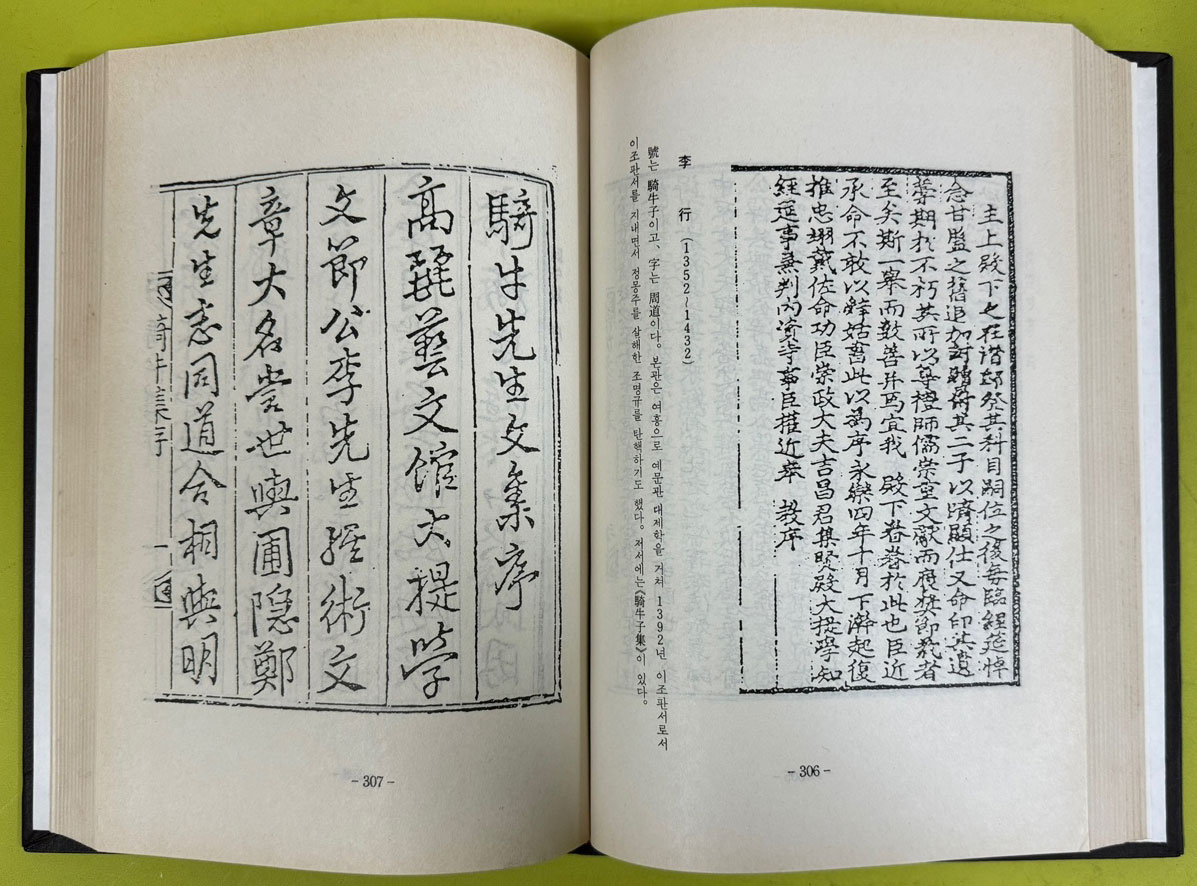 主上殿下之在潛邸登其科目嗣位之後每臨經筵悼
念甘盤之舊追加封贈其二子以濟顯仕又命印其遺
藁期於不朽其所以尊禮師儒崇重文獻而獎節義者
至矣斯一擧而數善并焉宜我 殿下眷眷於此也臣近
承命不敢以辭姑書此以爲序永樂四年十月下澣起復
推忠翊戴佐命功臣崇政大夫吉昌君集賢殿大提學知
經筵事兼判內資寺事臣權近奉 敎序
李 行 (1352~1432)
號는 騎牛子이고, 字는 周道이다. 본관은 여흥으로 예문관 대제학을 거쳐 1392년 이조판서로서
이조판서를 지내면서 정몽주를 살해한 조영규를 탄핵하기도 했다. 저서에는《騎牛子集》이 있다.
- 306 -
騎牛先生文集序
高麗藝文館大提學
文節公李先生經術文
章大名當世與圃隱鄭
先生志同道合相與明
騎牛集序 一
- 307 -